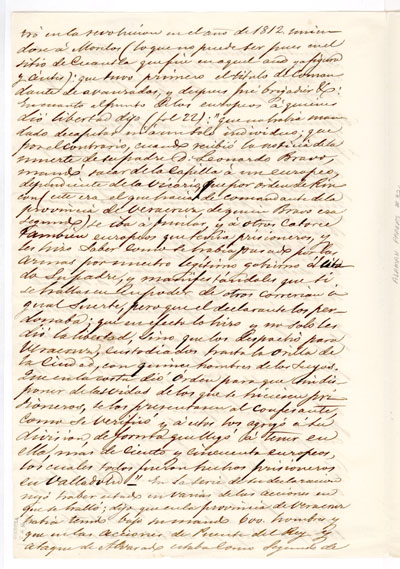 tró en la revolucion en el año de 1812. unien-
dose á Morelos (lo que no puede ser pues en el
sitio de Cuautla que fué en aquel año ya figuró
y mucho): que tuvo primero el titulo de Coman-
dante de avanzadas, y despues fué brigadier &c:
En cuanto al punto de los europeos á quienes
dió libertad dijo (fol 22): "Que no habia man-
dado decapitar ni á un solo individuo; que
por el contrario, cuando recibió la noticia de la
muerte de su padre D. Leonardo Bravo,
mandó sacar de la Capilla á un europeo,
dependiente de que por orden de Rin-
con (este era el que hacia de comandante de la
provincia de Veracruz, de quien Bravo era
segundo) se iba á fusilar y á otros catorce
tambien europeos que tenia prisioneros, y
les hizo saber como se habia pasado por las
armas por nuestro legitimo gobierno á
do su padre, y manifestandoles que si
se hallaran en poder de otros correrian i-
gual suerte, pero que el declarante los per-
donaba; que en efecto lo hizo y no solo les
dió la libertad, sino que los despachó para
Veracruz, custodiados hasta la orilla de
la Ciudad, con quince hombres de los suyos.
Que en la corta dió orden para que sin dis-
poner de las vidas de los que se hiciesen pri-
sioneros, se los presentaran al confesante,
como se verificó y á estos los agregó á su
division, de forma que llegó á tener en
ella, mas de ciento y cincuenta europeos,
los cuales todos fueron hechos prisioneros
en Valladolid"— En la serie de su declaracion
negó haber estado en varias de las acciones en
que se halló; dijo que en la provincia de Veracruz
habia tenido bajo su mando 600. hombres y
que en las acciones de Puente del Rey y
ataque de Alvarado estaba como segundo de